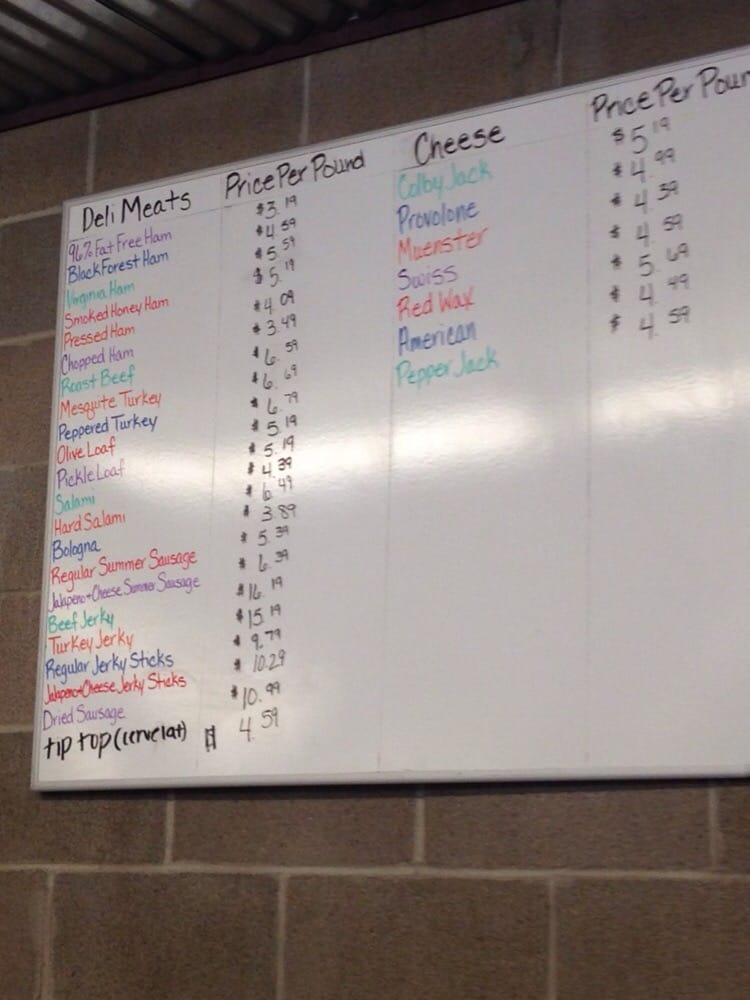 Deli Meats Price Per Pound
96% Fat Free Ham $3.19
Black Forest Ham $4.59
Virginia Ham $5.59
Smoked Honey Ham $5.19
Pressed Ham $4.09
Chopped Ham $3.49
Roast Beef $6.59
Mesquite Turkey $6.69
Peppered Turkey $6.79
Olive Loaf $5.19
Pickle Loaf $5.19
Salami $4.39
Hard Salami $6.49
Bologna $3.89
Regular Summer Sausage $5.39
Jalapeno+Cheese Summer Sausage $6.39
Beef Jerky $16.19
Turkey Jerky $15.19
Regular Jerky Sticks $9.79
Jalapeno+Cheese Jerky Sticks $10.29
Dried Sausage $10.99
tip top (cervelat) $4.59
Cheese Price Per Poun
Colby Jack $5.19
Provolone $4.99
Muenster $4.39
Swiss $4.59
Red Wax $5.69
American $4.49
Pepper Jack $4.59